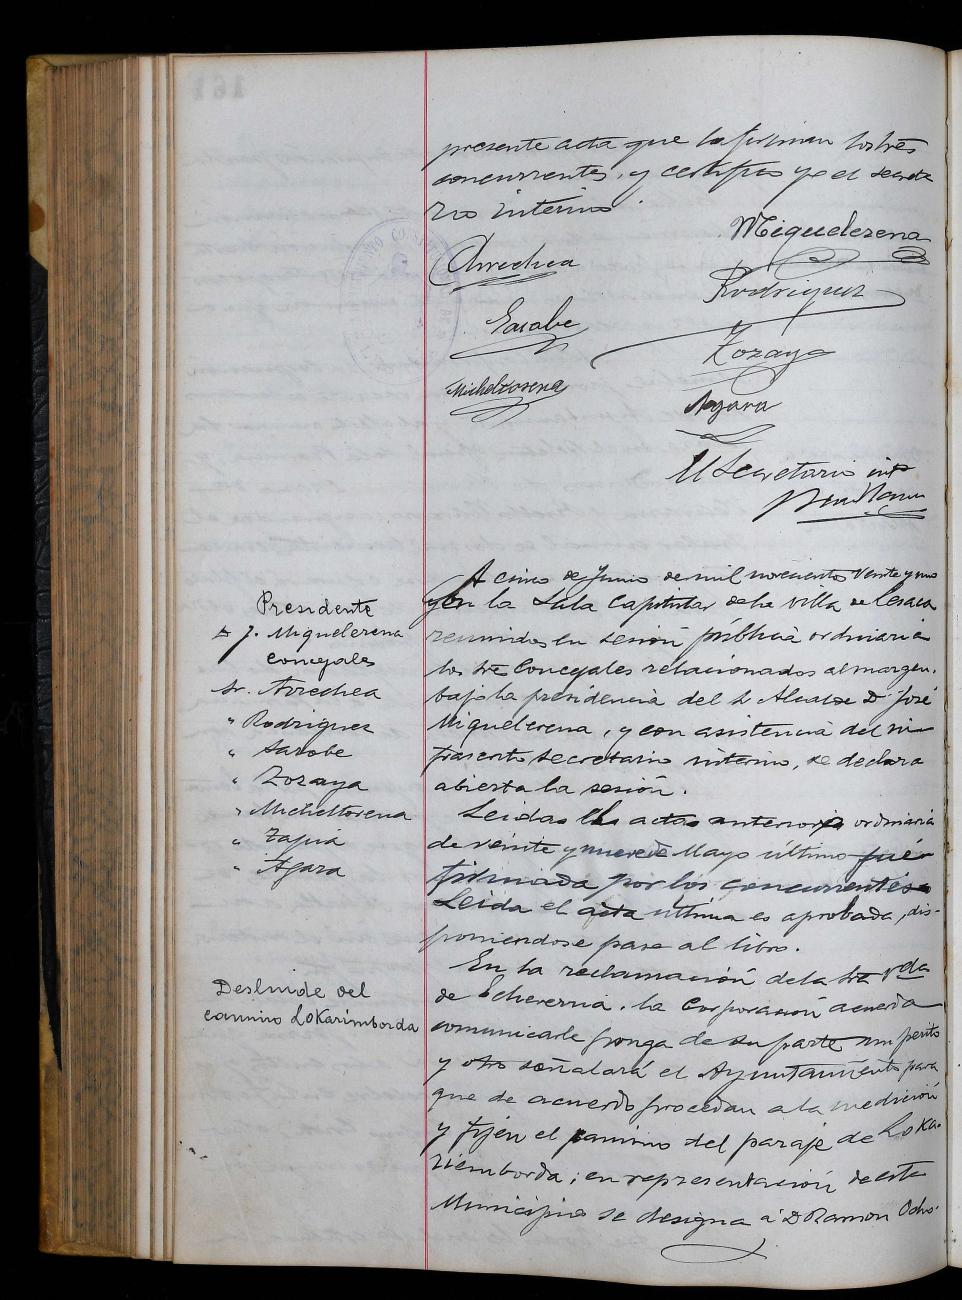 presente acta que la firman los tres
concurrentes, y certifico yo el secreta
rio interino.
Miguelerena
Arrechea
Rodriguez
Sarobe
Zozaya
Micheltorena
Agara
El Secretario int.º
A cinco de Junio de mil novecientos veinte y uno
y en la Sala Capitular de la villa de Lesaca
reunidos en sesión pública ordinaria
los Sres Concejales relacionados al margen,
bajo la presidencia del Sr Alcalde D. José
Miguelerena, y con asistencia del in-
frascrito secretario interino, se declara
abierta la sesión.
Presidente
D. J. Miguelerena
Concejales
Sr. Arrechea
" Rodriguez
" Sarobe
" Zozaya
" Micheltorena
" Tapia
" Agara
Leidas las actas anterior ordinaria
de veinte y nueve de Mayo último fué
firmada por los concurrentes
Leida el acta última es aprobada, dis-
poniendose pase al libro.
Deslinde del
camino Lokarimborda
En la reclamación de la Sra Vda
de Echeverria, la Corporación acuerda
comunicarle ponga de su parte un perito
y otro señalará el Ayuntamiento para
que de acuerdo procedan a la medición
y fijen el camino del paraje de Loka-
riemborda; en representación de este
Municipio se designa á D Ramon Ocho-